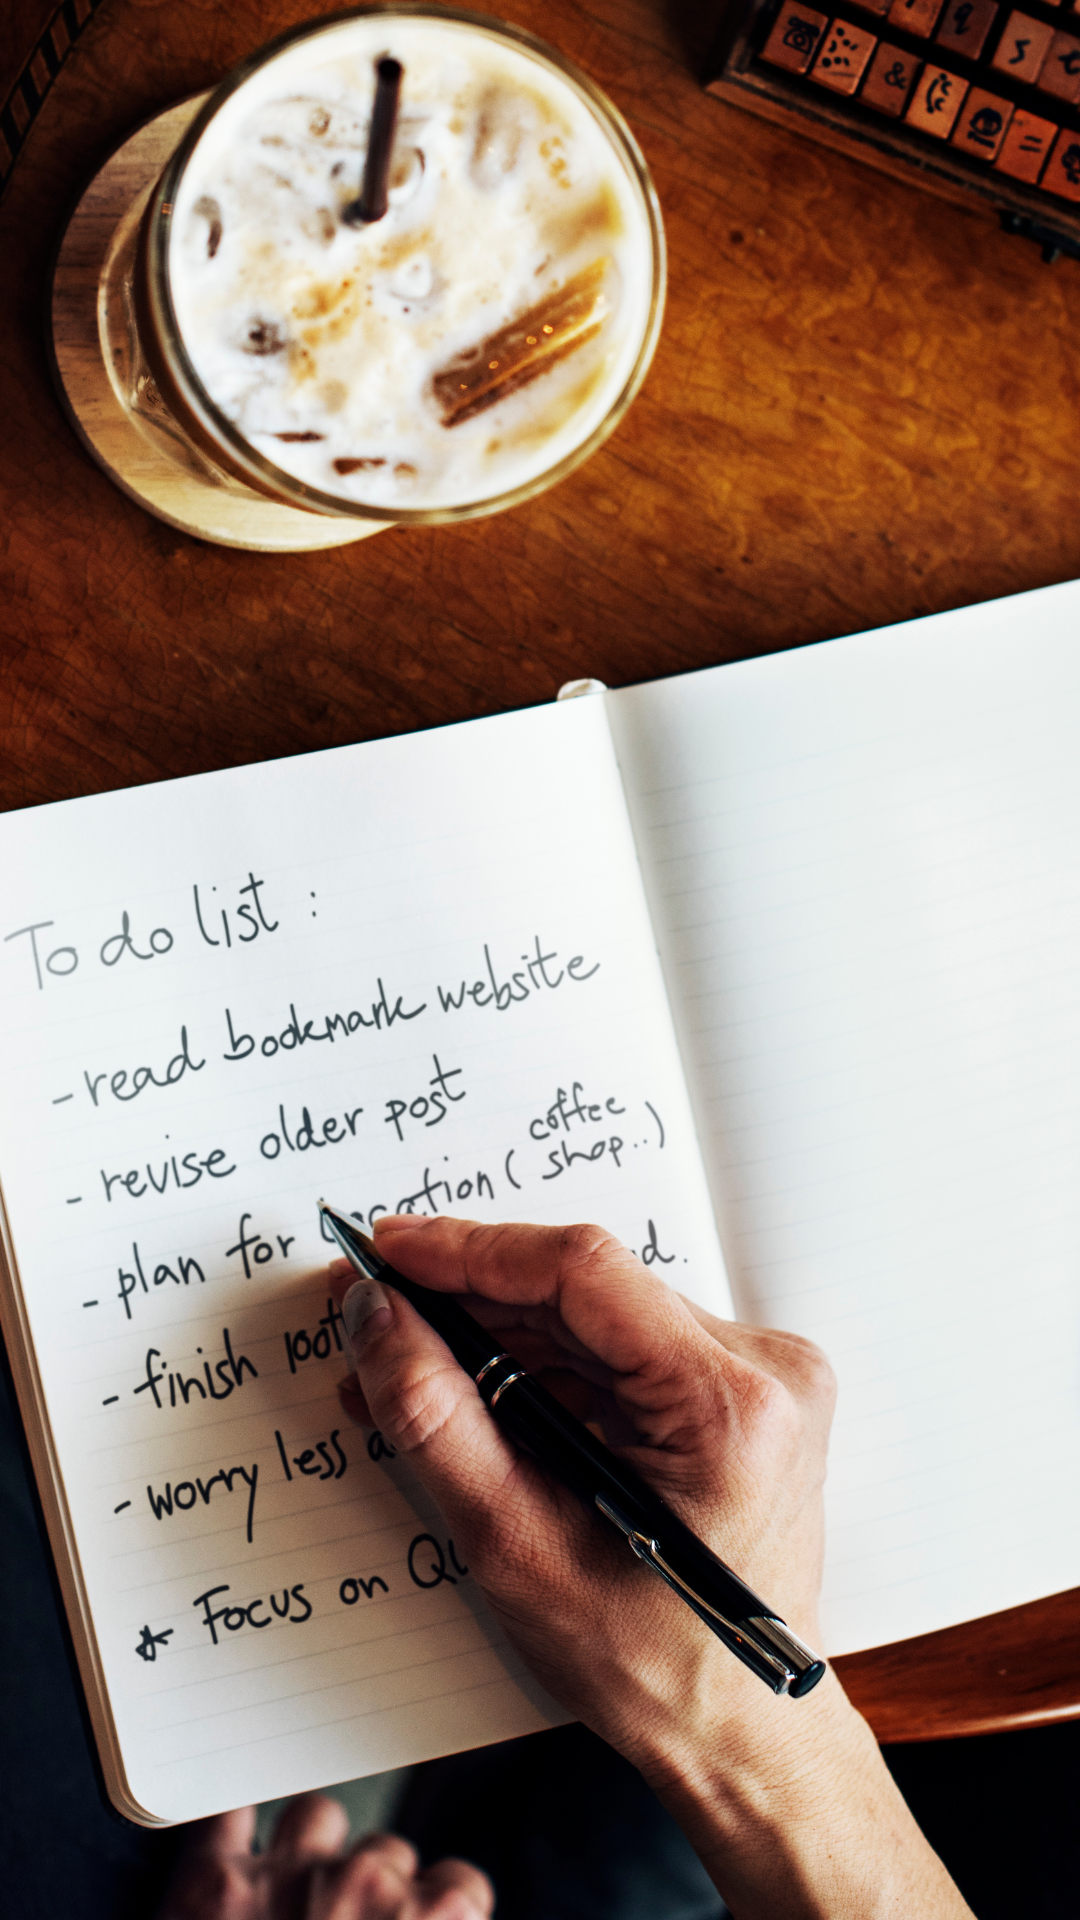 To do list :
- read bookmark website
- revise older post
- plan for location ( coffee shop.. )
- finish
- worry less
* Focus on